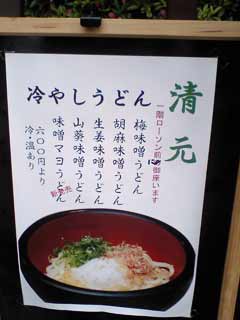 冷やしうどん
清元
一階ローソン前に御座います
梅味噌うどん
胡麻味噌うどん
生姜味噌うどん
山葵味噌うどん
味噌マヨうどん
新発売
六〇〇円より
冷・温あり